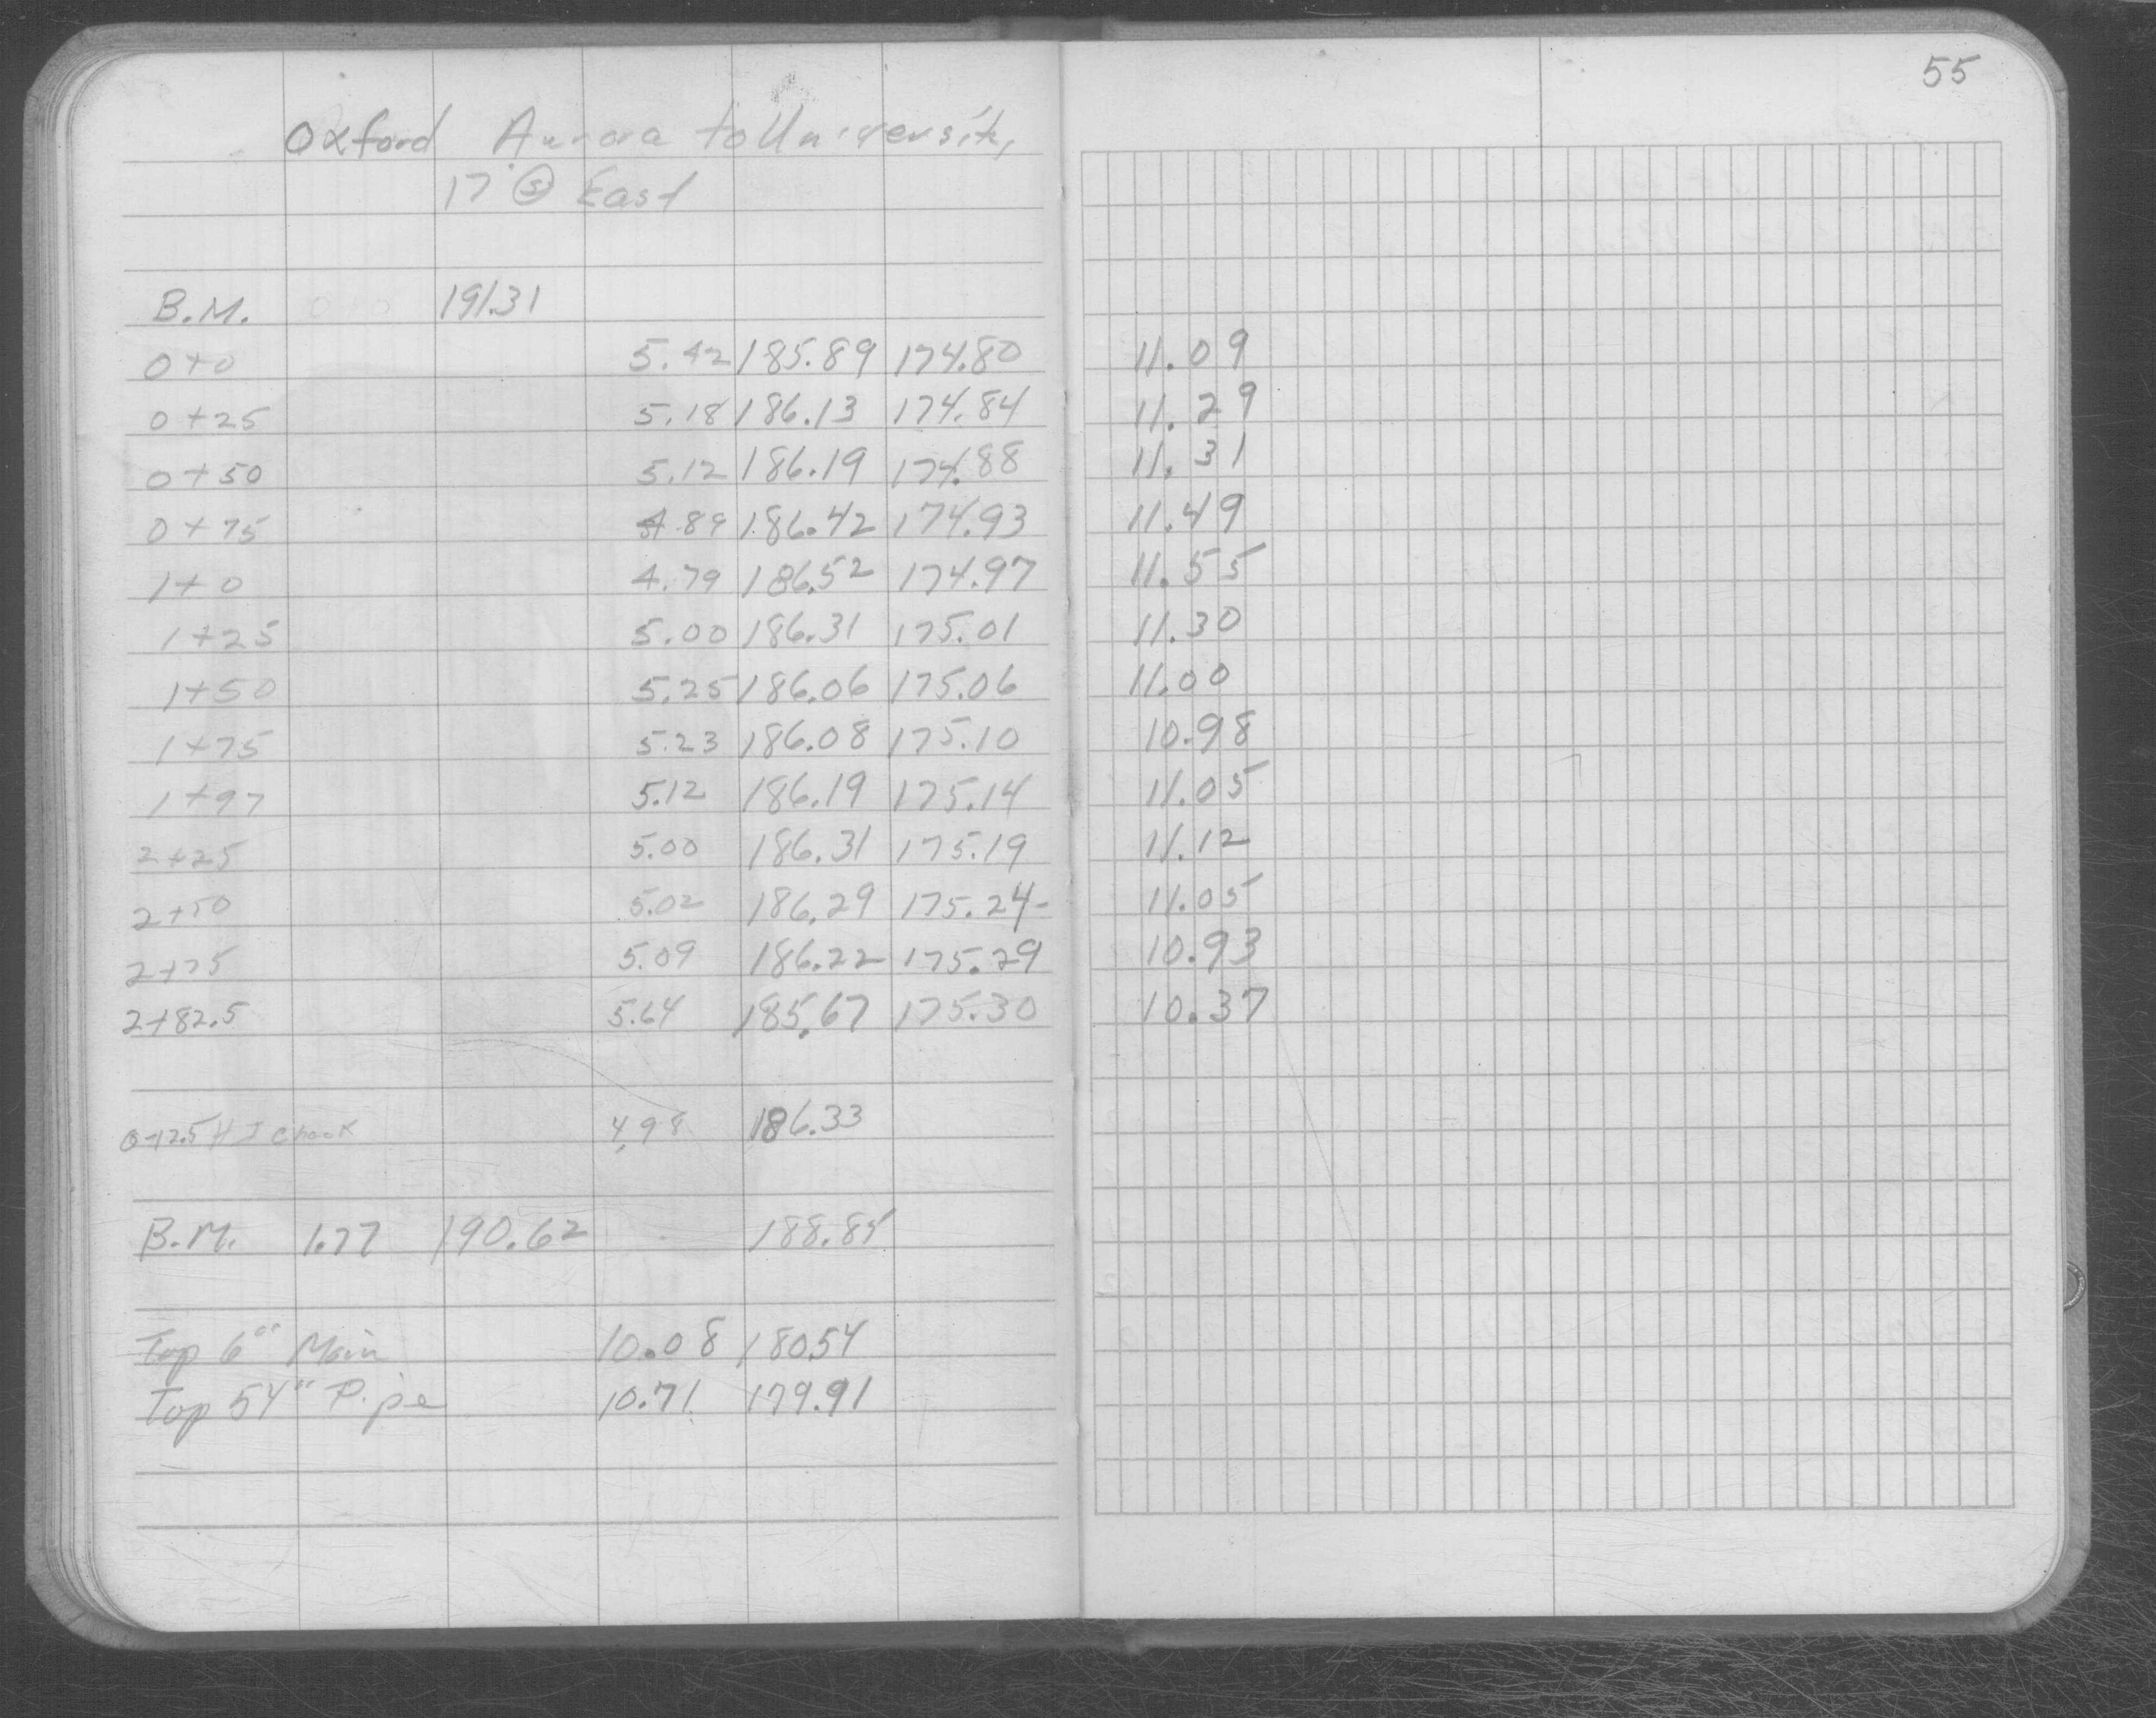 55
Oxford Aurora to University
17' Ⓢ East
B.M. 0+0 191.31
0+0 5.42 185.89 174.80 11.09
0+25 5.18 186.13 174.84 11.29
0+50 5.12 186.19 174.88 11.31
0+75 4.89 186.42 174.93 11.49
1+0 4.79 186.52 174.97 11.55
1+25 5.00 186.31 175.01 11.30
1+50 5.25 186.06 175.06 11.00
1+75 5.23 186.08 175.10 10.98
1+97 5.12 186.19 175.14 11.05
2+25 5.00 186.31 175.19 11.12
2+50 5.02 186.29 175.24 11.05
2+75 5.09 186.22 175.29 10.93
2+82.5 5.64 185.67 175.30 10.37
0+12.5 H I check 4.98 186.33
B.M. 1.77 190.62 188.85
Top 6" Main 10.08 180.54
Top 54" Pipe 10.71 179.91